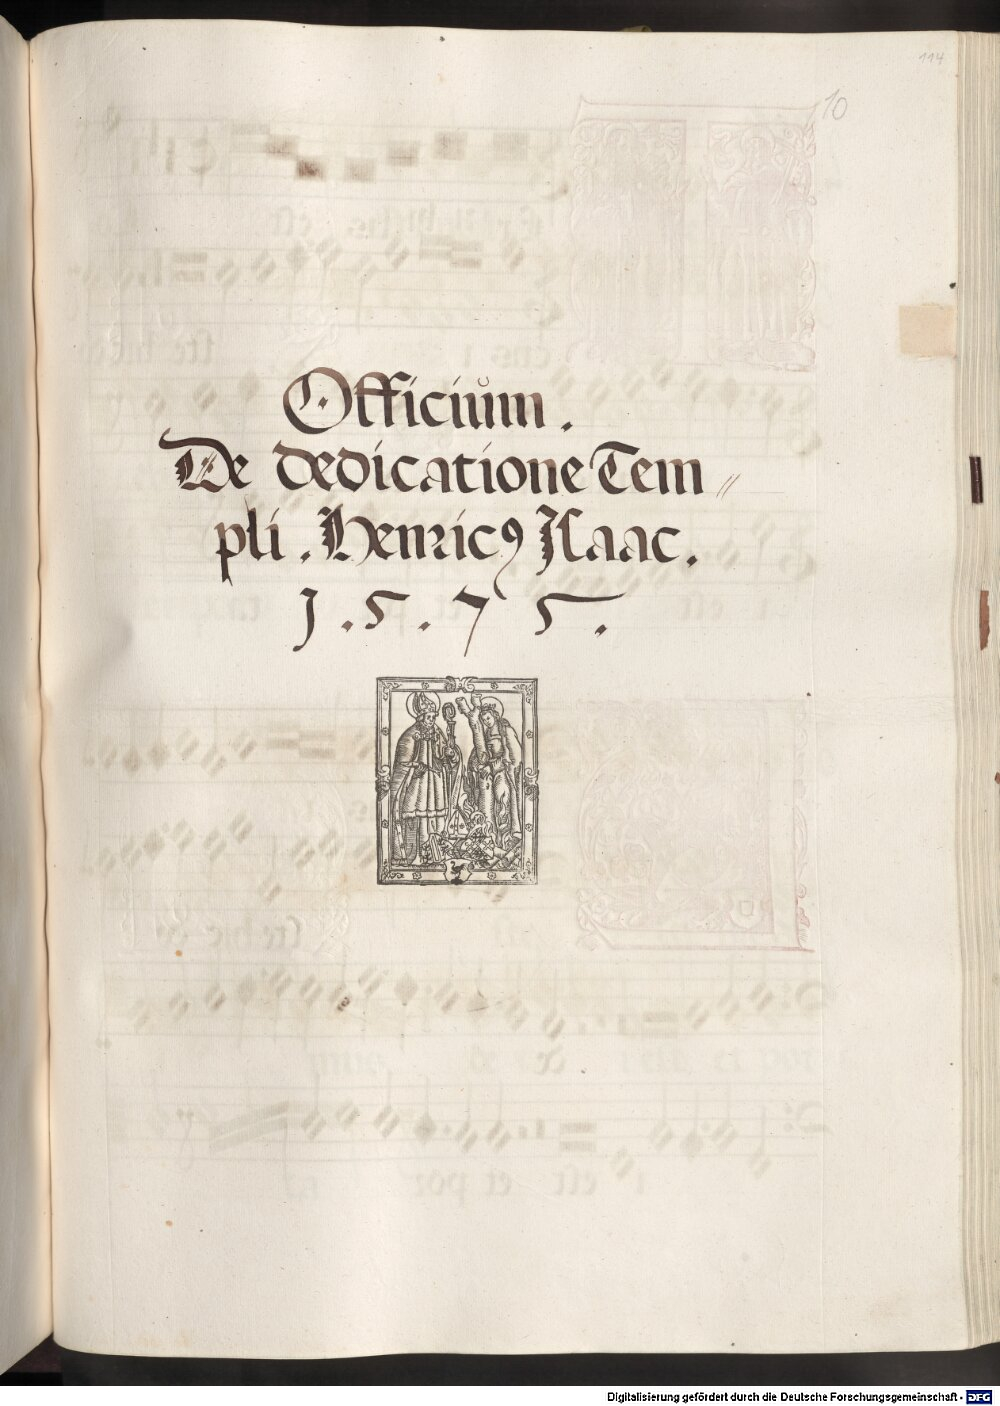 114
10
Officiũm.
De dedicatione Tem⸗
pli. Henricꝰ Isaac.
1.5.75.
Digitalisierung gefördert durch die Deutsche Forschungsgemeinschaft - DFG